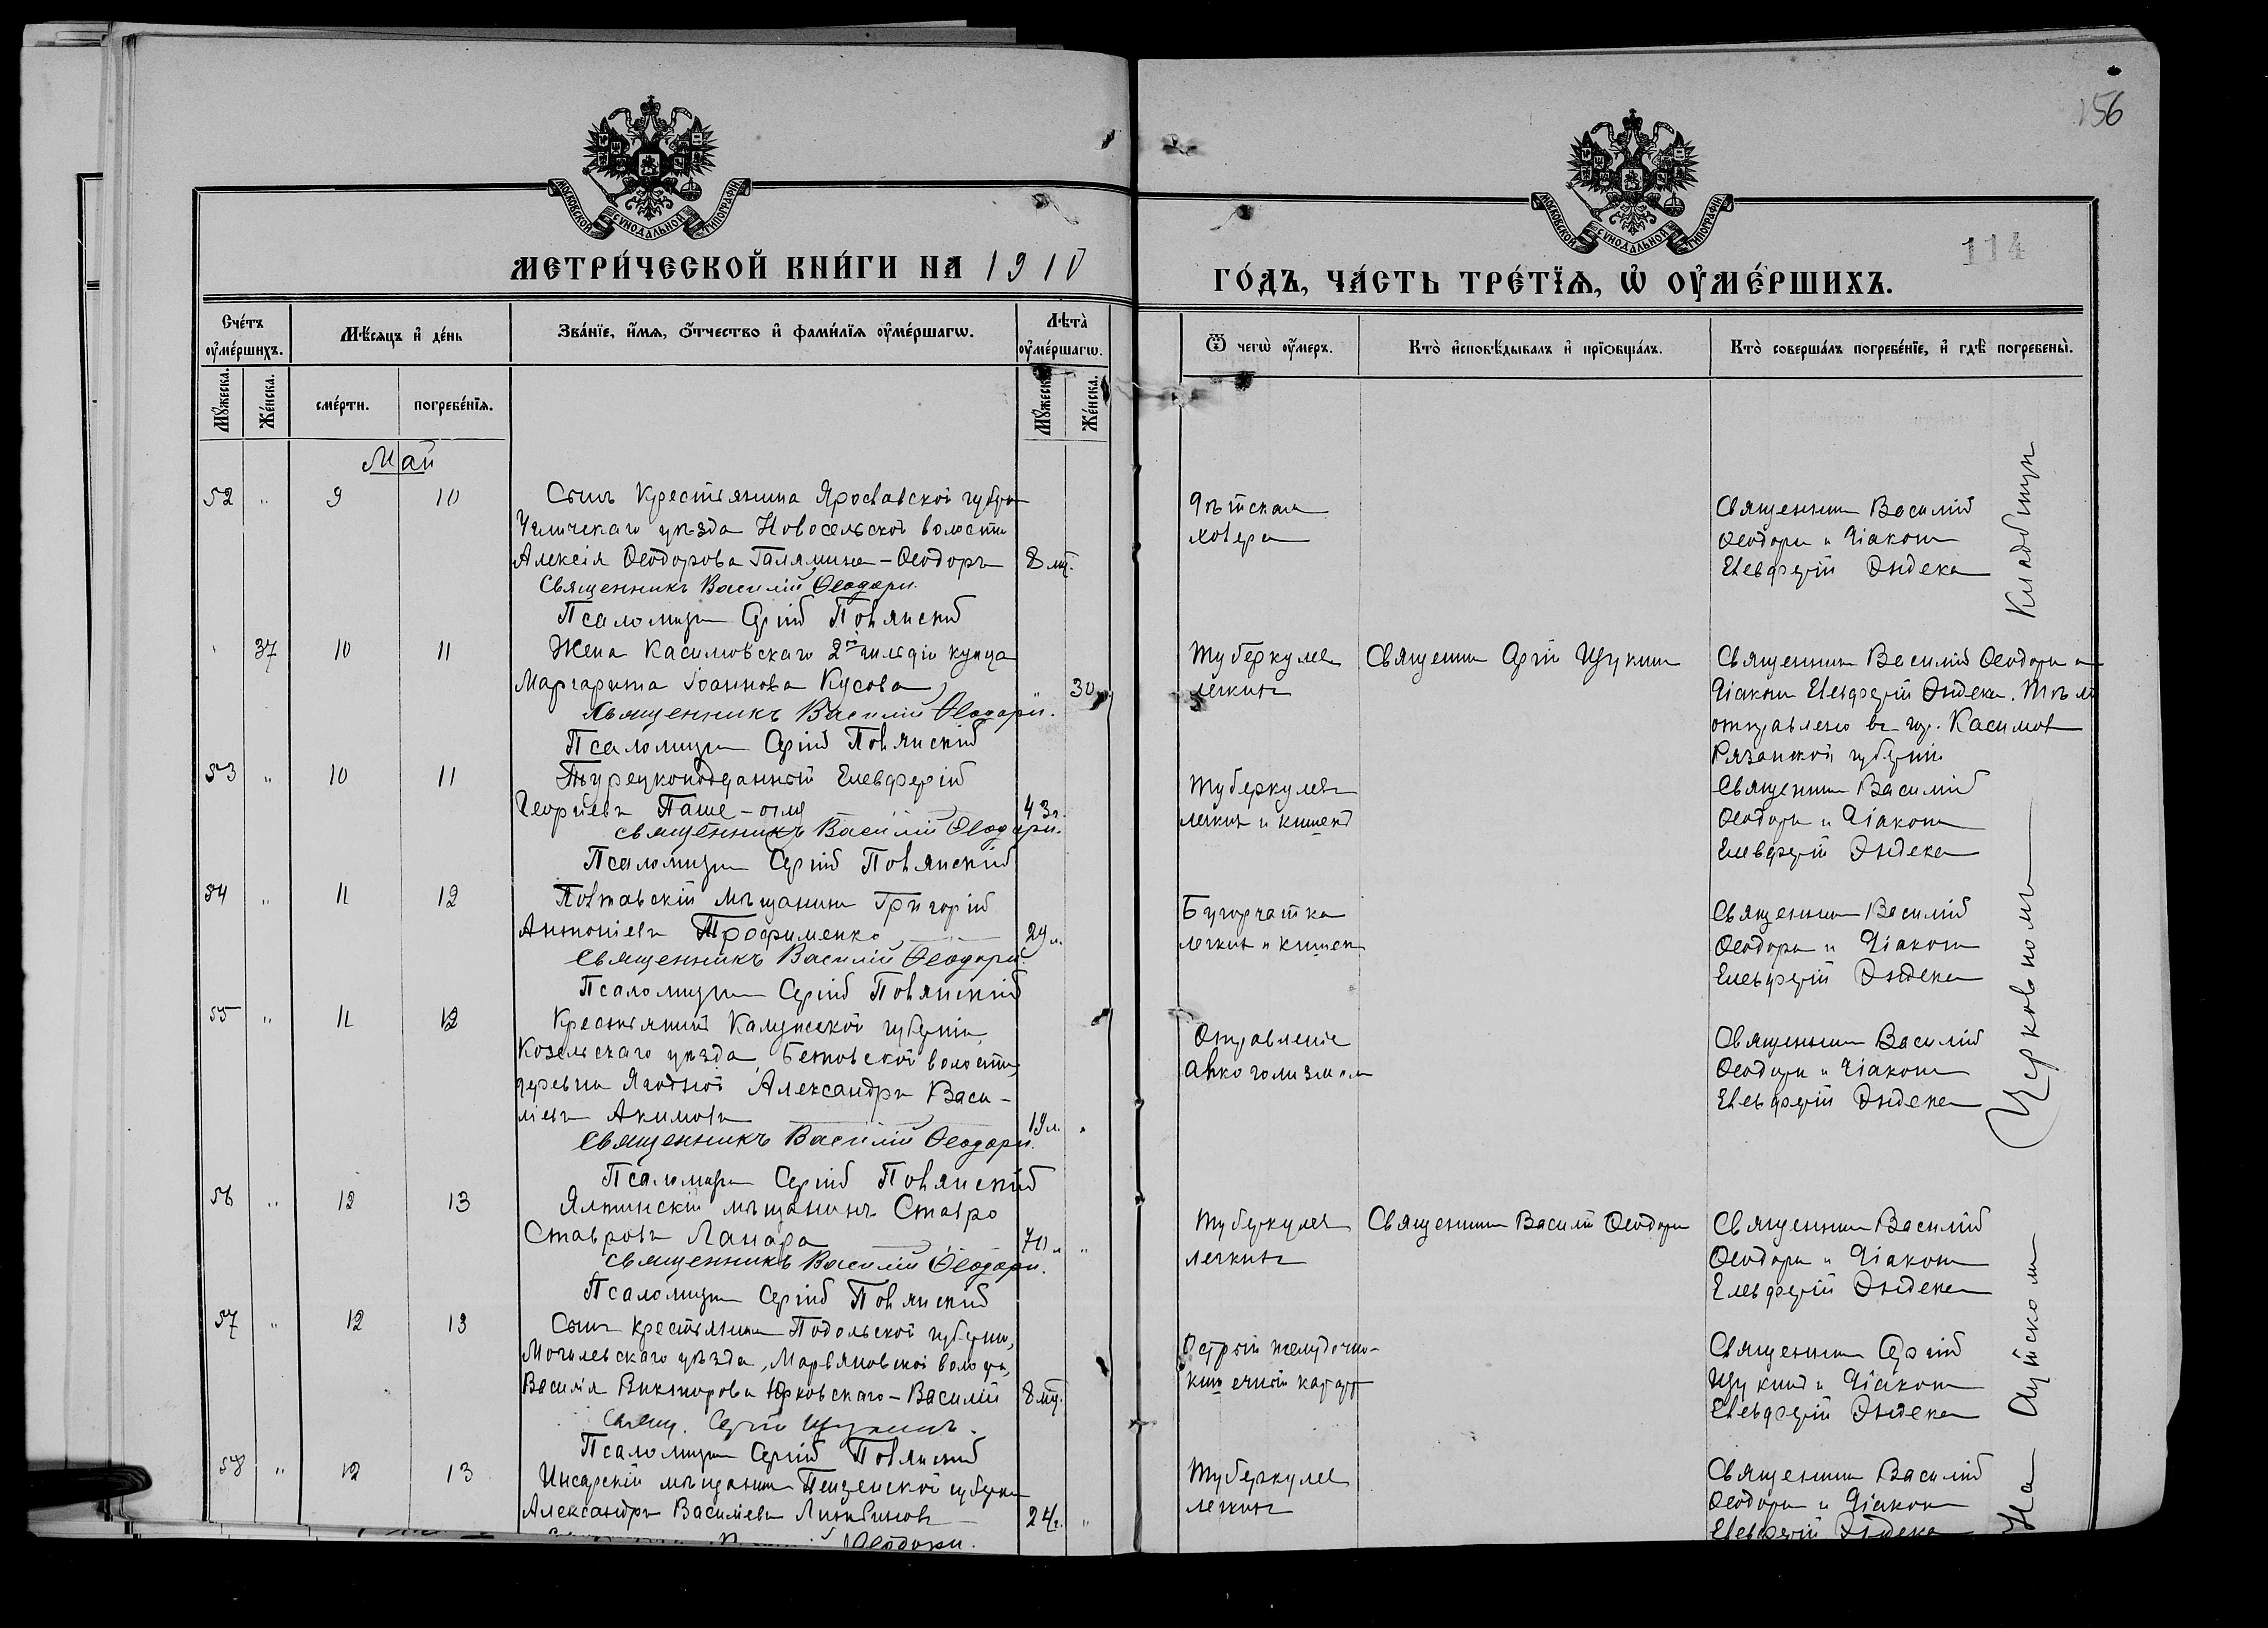 156
114
МОСКОВСКОЙ СУНОДАЛЬНОЙ ТИПОГРАФІИ
МОСКОВСКОЙ СУНОДАЛЬНОЙ ТИПОГРАФІИ
МЕТРИ́ЧЕСКОЙ КНИ́ГИ НА 1910
ГО́ДЪ, ЧА́СТЬ ТРЕ́ТЇѦ, Ѡ҆ ОУ҆МЕ́РШИХЪ.
Сче́тъ оу҆ме́ршихъ.
Мѣ́сяцъ и҆ де́нь
Зва́нїе, и҆́мя, ѻ҆́тчество и҆ фами́лїя оу҆ме́ршагѡ.
Лѣта̀ оу҆ме́ршагѡ.
Ѿ чегѡ̀ оу҆́меръ.
Кто̀ и҆сповѣ́дывалъ и҆ прїѡбща́лъ.
Кто̀ соверша́лъ погребе́нїе, и҆ гдѣ̀ погребены̀.
Мꙋ́жеска. Же́нска. сме́рти. погребе́нїя. Мꙋ́жеска. Же́нска.
Май
52 " 9 10 Сынъ Крестьянина Ярославской губерн
Угличскаго уѣзда Новосельской волости
Алексія Ѳеодорова Галямина - Ѳеодоръ 8 мц.
Священникъ Василій Ѳеодори.
Псаломщикъ Сергій Полянскій
Дѣтская
холера
Священникъ Василій
Ѳеодори и Діаконъ
Елевферій Эндека
" 37 10 11 Жена Касимовскаго 2й гильдіи купца
Маргарита Іоаннова Кусова " 30
Священникъ Василій Ѳеодори.
Псаломщикъ Сергій Полянскій
Туберкулезъ
легкихъ
Священникъ Сергій Щукинъ
Священникъ Василій Ѳеодори и
Діаконъ Елевферій Эндека. Тѣло
отправлено въ гор. Касимовъ
Рязанской губерніи
53 " 10 11 Турецкоподданный Елевферій
Георгіевъ Паше-оглу 43 г.
Священникъ Василій Ѳеодори.
Псаломщикъ Сергій Полянскій
Туберкулезъ
легкихъ и кишекъ
Священникъ Василій
Ѳеодори и Діаконъ
Елевферій Эндека
54 " 11 12 Полтавскій мѣщанинъ Григорій
Антоніевъ Трофименко 29 л.
Священникъ Василій Ѳеодори.
Псаломщикъ Сергій Полянскій
Бугорчатка
легкихъ и кишекъ
Священникъ Василій
Ѳеодори и Діаконъ
Елевферій Эндека
55 " 11 12 Крестьянинъ Калужской губерніи
Козельскаго уѣзда, Бетовской волости,
деревни Ягодной Александръ Васи-
ліевъ Акимовъ 19 л. "
Священникъ Василій Ѳеодори.
Псаломщикъ Сергій Полянскій
Отравленіе
алкоголизмомъ
Священникъ Василій
Ѳеодори и Діаконъ
Елевферій Эндека
56 " 12 13 Ялтинскій мѣщанинъ Ставро
Ставровъ Панара 70 л "
Священникъ Василій Ѳеодори.
Псаломщикъ Сергій Полянскій
Туберкулезъ
легкихъ
Священникъ Василій Ѳеодори
Священникъ Василій
Ѳеодори и Діаконъ
Елевферій Эндека
57 " 12 13 Сынъ крестьянина Подольской губерніи,
Могилевскаго уѣзда, Марьяновской волости,
Василія Викторова Юрковскаго - Василій 8 мц.
Свящ. Сергій Щукинъ.
Псаломщикъ Сергій Полянскій
Острый желудочно-
кишечный катарръ
Священникъ Сергій
Щукинъ и Діаконъ
Елевферій Эндека
58 " 12 13 Инсарскій мѣщанинъ Пензенской губерніи
Александръ Василіевъ 24 г. "
Ѳеодори.
Туберкулезъ
легкихъ
Священникъ Василій
Ѳеодори и Діаконъ
Елевферій Эндека
На Аутскомъ Церковномъ Кладбищѣ